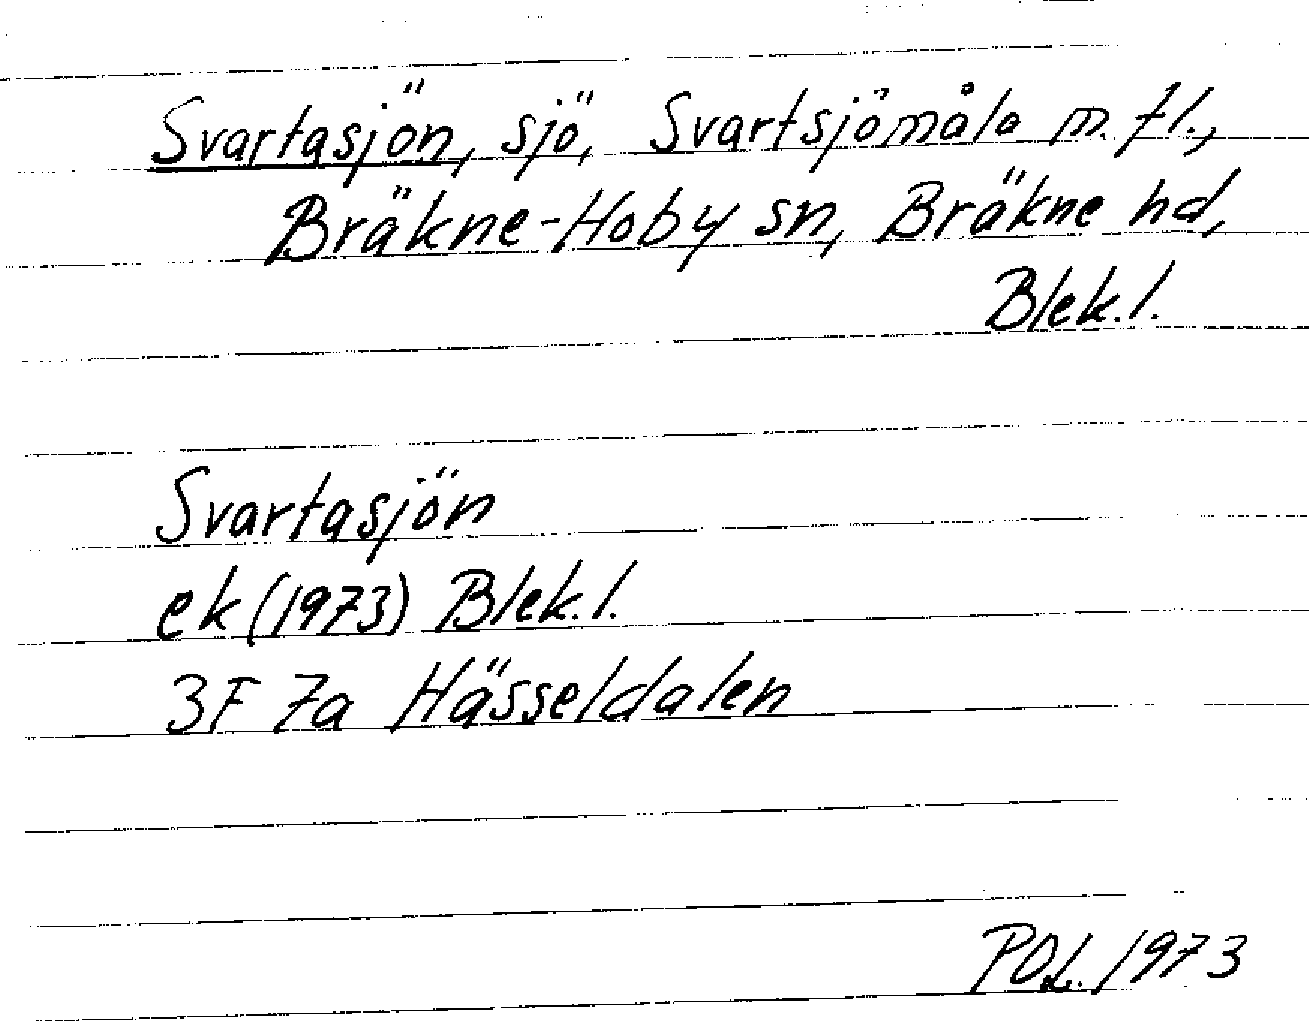 Svartasjön, sjö, Svartsjömåla m. fl.,
Bräkne-Hoby sn, Bräkne hd,
Blek. l.
Svartasjön
ek (1973) Blek. l.
3F 7a Hässeldalen
POL. 1973